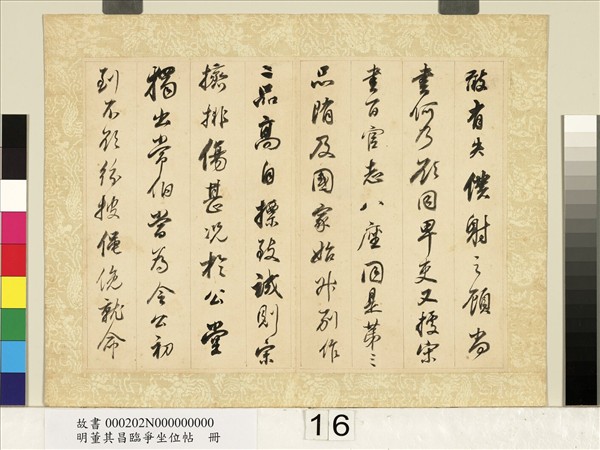 敢有失僕射之顧尚
書何乃欲同卑吏又據宋
書百官志八座同是第三
品隋及國家始升別作
二品高自標致誠則宗
擠排傷甚況於公堂
獨出常伯當為令公初
到不欲紛披僶俛就命
故書 000202N000000000
明董其昌臨爭坐位帖 冊
16